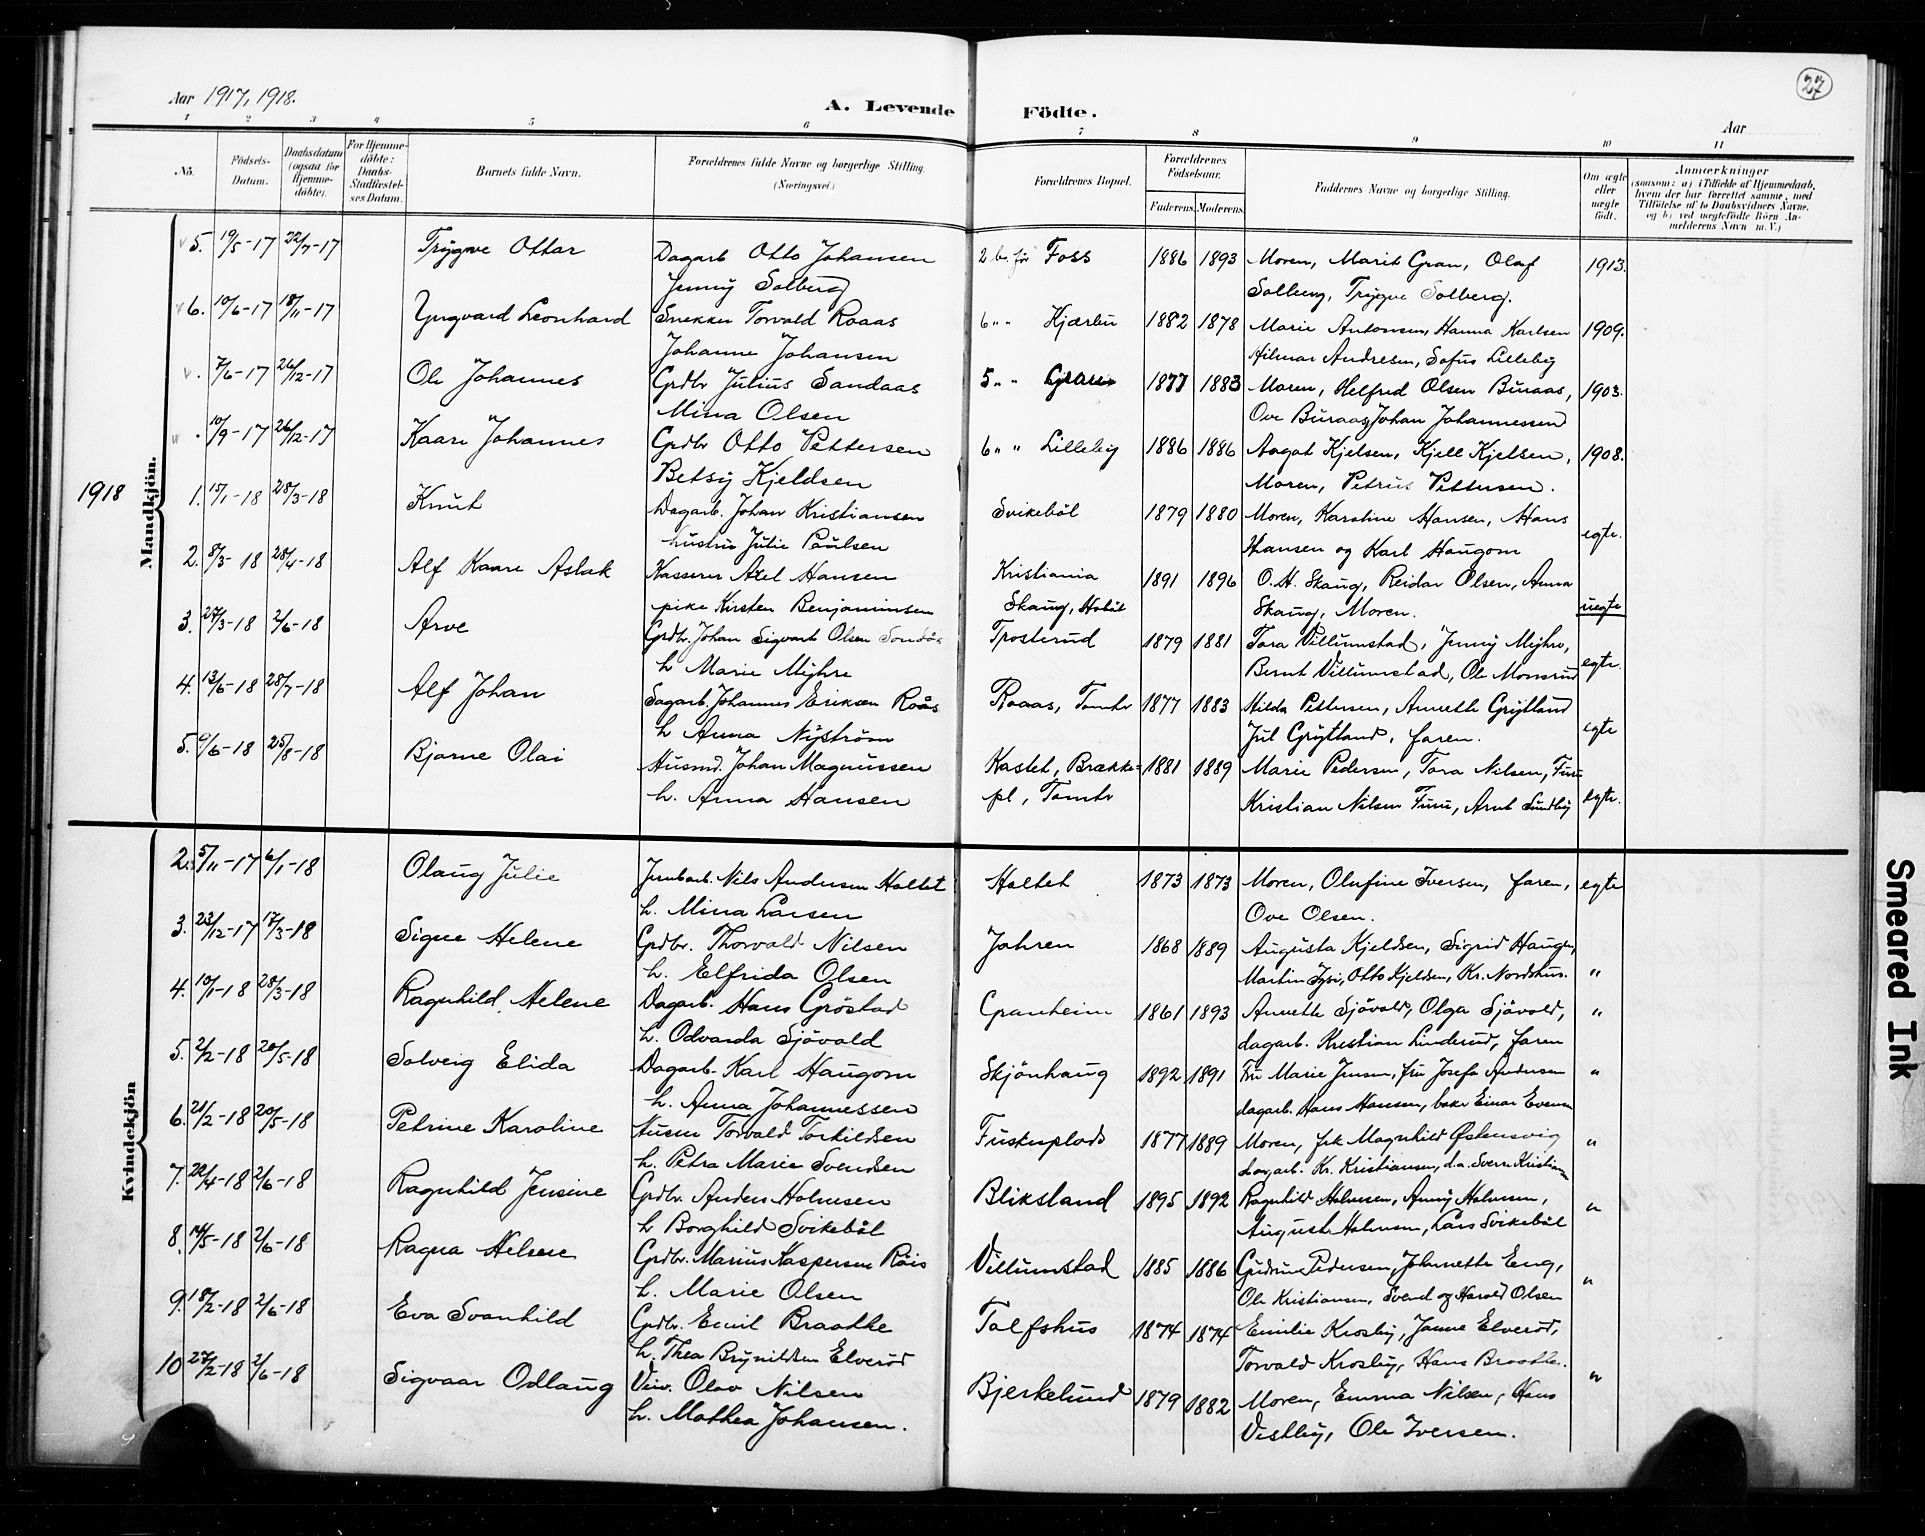 27
Aar 1917, 1918.
A. Levende Födte.
Aar
1 2 3 4 5 6 7 8 9 10 11
No. Födsels-Datum. Daabsdatum (ogsaa for Hjemme-döbte). For Hjemme-döbte: Daabs-Stadfæstel-ses Datum. Barnets fulde Navn. Forældrenes fulde Navne og borgerlige Stilling. (Næringsvei) Forældrenes Bopæl. Forældrenes Födselsaar. Faderens. Moderens. Faddernes Navne og borgerlige Stilling. Om ægte eller uægte födt. Anmærkninger (saasom: a) i Tilfælde af Hjemmedaab, hvem der har forrettet samme, med Tilföielse af to Daabsvidners Navne. og b) ved uægtefödte Börn An-melderens Navn m. V.)
Mandkjön.
5. 19/5-17 22/7-17 Trygve Ottar Dagarb Otto Johansen 2 b. før Foss 1886 1893 Moren, Marit Gran, Olaf 1913.
Jenny Solberg Solberg, Trygve Solberg.
6. 10/6-17 18/11-17 Yngvard Leonhard Snekker Torvald Roaas 6 " " Hjærbu 1882 1878 Marie Antonsen, Hanna Karlsen 1909.
Johanne Johansen Hilmar Andresen, Sofus Lilleby
7/6-17 26/12-17 Ole Johannes Grdbr Julius Sandaas 5 " " 1877 1883 Moren, Helfred Olsen Buraas, 1903.
Mina Olsen Ove Buraas, Johan Johannessen
10/9-17 26/12-17 Kaare Johannes Grdbr Otto Pettersen 6 " " Lilleby 1886 1886 Aagot Kjelsen, Kjell Kjelsen, 1908.
Betsy Kjeldsen Moren, Petrus Pettersen.
1918
1. 15/1-18 28/3-18 Knut Dagarb. Johan Kristiansen Svikeböl 1879 1880 Moren, Karoline Hansen, Hans egte.
hustru Julie Paulsen Hansen og Karl Haugom
2. 8/3-18 28/4-18 Alf Kaare Aslak Kasserer Axel Hansen Kristiania 1891 1896 O. H. Skaug, Reidar Olsen, Anna uegte
pike Kirsten Benjaminsen Skaug, Hoböl Skaug, Moren.
3. 27/3-18 2/6-18 Arve Grdbr. Johan Sigvart Olsen Trosterud 1879 1881 Tora Villumstad, Jenny Myhre, egte.
h Marie Myhre Bernt Villumstad, Ole Monsrud
4. 13/6-18 28/7-18 Alf Johan Sagarb. Johannes Eriksen Roås Roaas, Tomter 1877 1883 Hilda Pettersen, Annette Grytland egte
h Anna Nyström Jul Grytland, faren.
5. 9/6-18 25/8-18 Bjarne Olai Husmd. Johan Magnussen Kastet, Brække- 1881 1889 Marie Pedersen, Tora Nilsen, Furu egte.
h. Anna Hansen pl, Tomter Kristian Nilsen Furu, Arnt Sundby
Kvindekjön
2. 5/11-17 6/1-18 Olaug Julie Jernbarb. Nils Andersen Holtet Holtet 1873 1873 Moren, Olufine Iversen, faren, egte
h. Mina Larsen Ove Olsen.
3. 23/12-17 17/3-18 Signe Helene Grdbr. Thorvald Nilsen Jahren 1868 1889 Augusta Kjeldsen, Sigrid Haugen, "
h. Elfrida Olsen Martin Fyri, Otto Kjeldsen, Kr. Nordshus.
4. 10/1-18 28/3-18 Ragnhild Helene Dagarb. Hans Gröstad Granheim 1861 1893 Annette Sjövold, Olga Sjövold, "
h. Odvarda Sjövold dagarb. Kristian Linderud, faren
5. 2/2-18 20/5-18 Solveig Elida Dagarb. Karl Haugom Skjönhaug 1892 1891 Fru Marie Jensen, fru Josefa Andersen "
h. Anna Johannessen dagarb. Hans Hansen, baker Einar Evensen
6. 21/2-18 20/5-18 Petrine Karoline Husm Torvald Torkildsen Fuskeplads 1877 1889 Moren, frk Magnhild Østensvig "
h. Petra Marie Svendsen dagarb. Kr. Kristiansen, d.a. Sverre Kristian
7. 22/4-18 2/6-18 Ragnhild Jensine Grdbr. Anders Holmsen Bliksland 1895 1892 Ragnhild Holmsen, Anny Holmsen, "
h Borghild Svikeböl August Holmsen, Lars Svikeböl
8. 14/5-18 2/6-18 Ragna Helene Grdbr. Marius Kaspersen Röis Villumstad 1885 1886 Gudrun Pedersen, Johanette Eng, "
h. Marie Olsen Ole Kristiansen, Svend og Harald Olsen
9. 18/2-18 2/6-18 Eva Svanhild Grdbr. Emil Braathe Tolfshus 1874 1874 Emilie Krosby, Janne Elveröd,
h. Thea Brynildsen Elveröd Torvald Krosby, Hans Braathe.
10 27/2-18 2/6-18 Sigvaar Odlaug Olav Nilsen Bjerkelund 1879 1882 Moren, Emma Nilsen, Hans "
h. Mathea Johansen. Vestby, Ole Iversen.
Smeared Ink